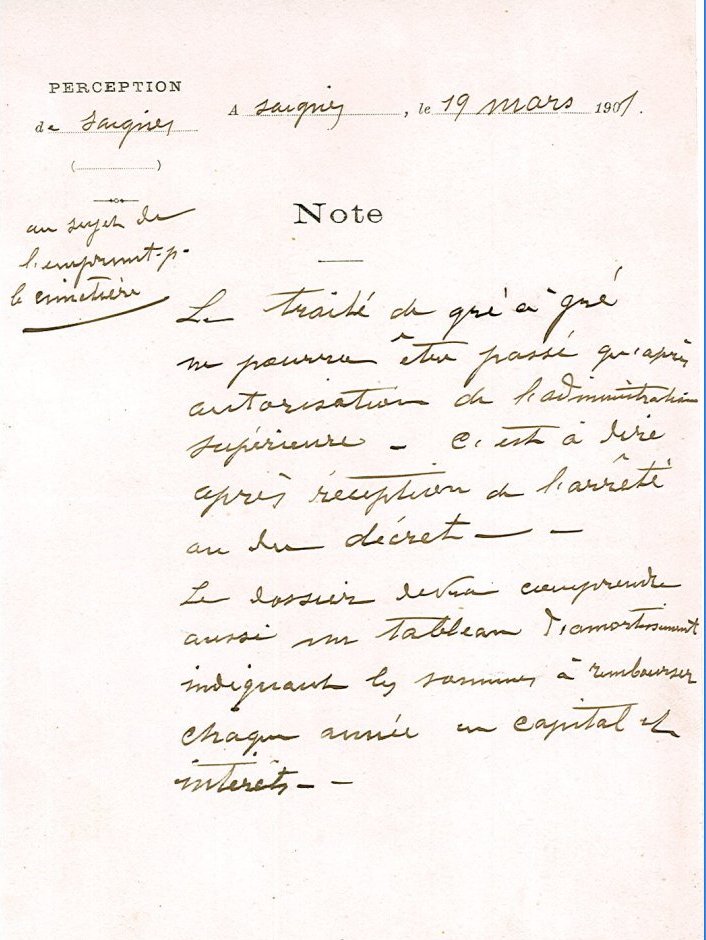 PERCEPTION
de Saignes
A Saignes, le 19 mars 1901.
(          )
Note
au sujet de
l'emprunt-p-
le cimetière
Le traité de gré à gré
ne pourra être passé qu'après
autorisation de l'administration
supérieure - c'est à dire
après réception de l'arrêté
ou du décret - -
Le dossier devra comprendre
aussi un tableau d'amortissement
indiquant les sommes à rembourser
chaque année en capital et
intérêts - -